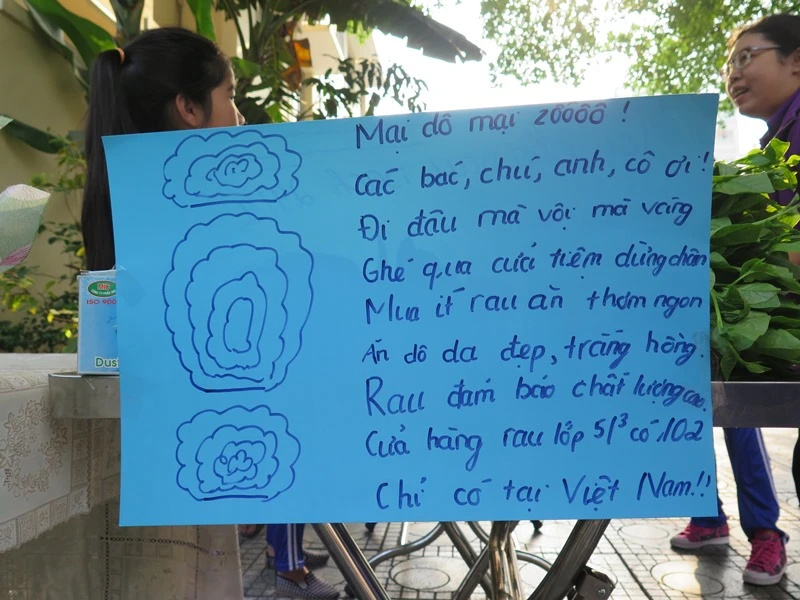 Mại dô mại zôôôô !
Các bác, chú, anh, cô ơi !
Đi đâu mà vội mà vàng
Ghé qua cưởi tiệm dừng chân
Mua ít rau ăn thơm ngon
Ăn dô da đẹp, trắng hồng.
Rau đảm bảo chất lượng cao.
Cửa hàng rau lớp 5/³ có 102
Chỉ có tại Việt Nam!!
ISO 900
Dust